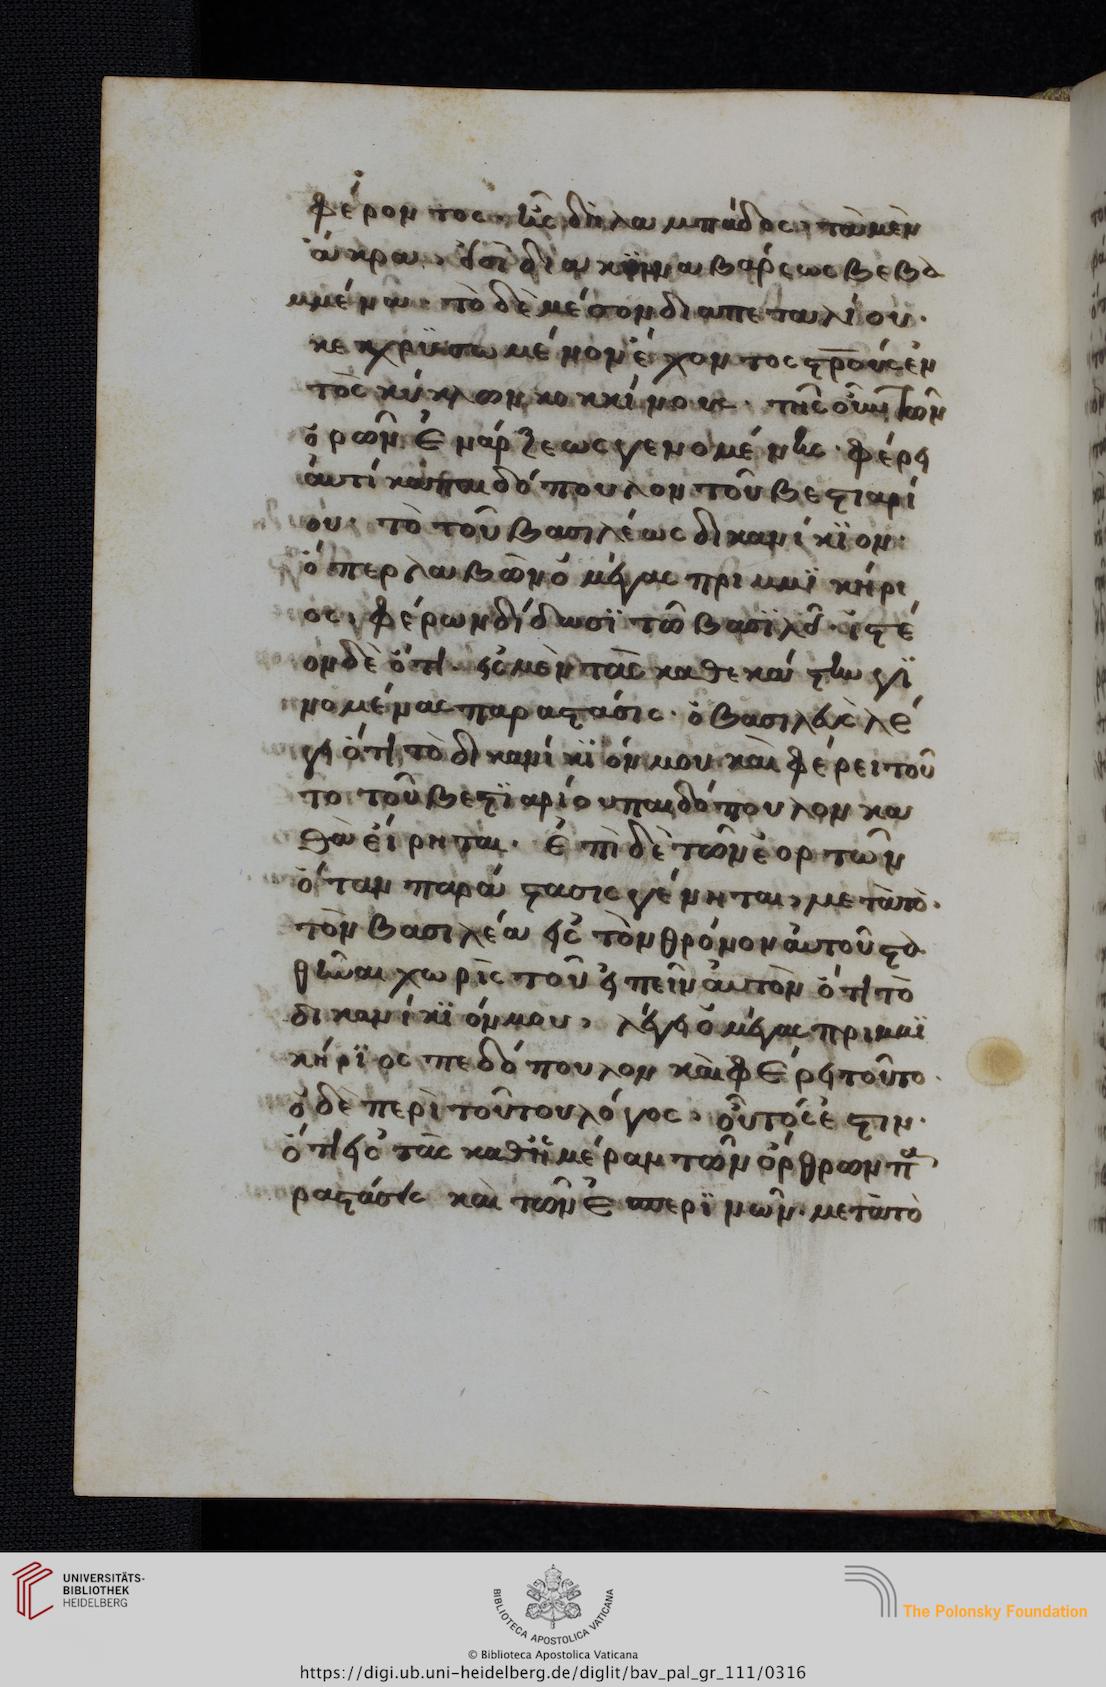 φέροντος· ἧς δὴ λαμπάδος, τὰ μὲν
ἄκρα, εἰσὶ διὰ κινναβάρεως βεβα
μμένα· τὸ δὲ μέσον διαπεταλίου·
κεχρϋσωμένον ἔχοντος σρούς ἐν
τὸς κύκλων κοκκίνους· τῆς οὖν τῶν
ὁρῶν ἐνάρξεως γενομένης· φέρει
αὐτίκα παιδόπουλον τοῦ βεστιαρί
ου· τὸ τοῦ βασιλέως δικανίκϊον·
ὅπερ λαβὼν ὁ μέγας πριμμϊκήρι
ος, φέρων δίδωσϊ τῶ βασϊλεῖ· ἰστέ
ον δὲ ὅτι· εἰς μὲν τὰς καθεκάστην γϊ
νομένας παραστάσις· ὁ βασιλεὺς λέ
γει ὅτι τὸ δικανίκϊόν μου καὶ φέρει τοῦ
το τοῦ βεστϊαρίου παιδόπουλον κα
θὰ εἴρηται· ἐπὶ δὲ τῶν ἑορτῶν
ὅταν παράστασις γένηται, μετὰ τὸ·
τὸν βασιλέα εἰς τὸν θρόνον αὐτοῦ στα
θῆναι χωρὶς τοῦ εἰπεῖν αὐτὸν ὅτι τὸ
δικανίκϊόν μου, λέγει ὁ μέγας πριμμϊ
κήρϊος πεδόπουλον καὶ φέρει τοῦτο·
ὁ δὲ περὶ τούτου λόγος, οὗτός ἐστιν·
ὅτι εἰς τὰς καθ' ἡμέραν τῶν ὄρθρων πα
ραστάσεις καὶ τῶν ἑσπερϊνῶν· μετὰ τὸ
UNIVERSITÄTS-
BIBLIOTHEK
HEIDELBERG
BIBLIOTECA APOSTOLICA VATICANA
The Polonsky Foundation
© Biblioteca Apostolica Vaticana
https://digi.ub.uni-heidelberg.de/diglit/bav_pal_gr_111/0316